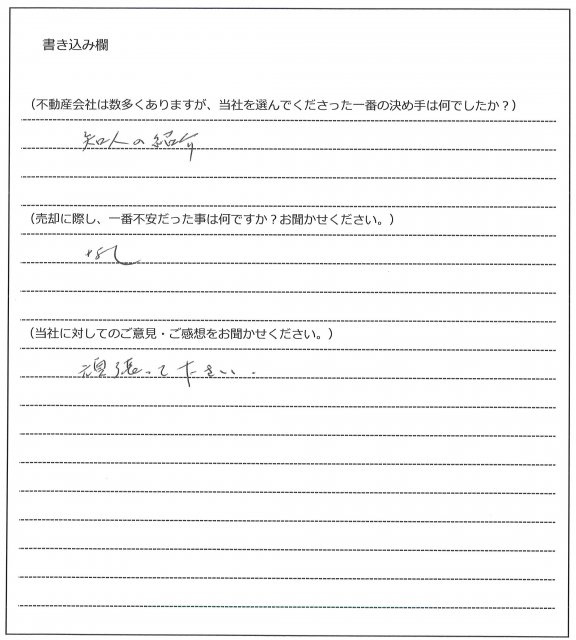 書き込み欄
（不動産会社は数多くありますが、当社を選んでくださった一番の決め手は何でしたか？）
知人の紹介
（売却に際し、一番不安だった事は何ですか？お聞かせください。）
なし
（当社に対してのご意見・ご感想をお聞かせください。）
頑張って下さい.